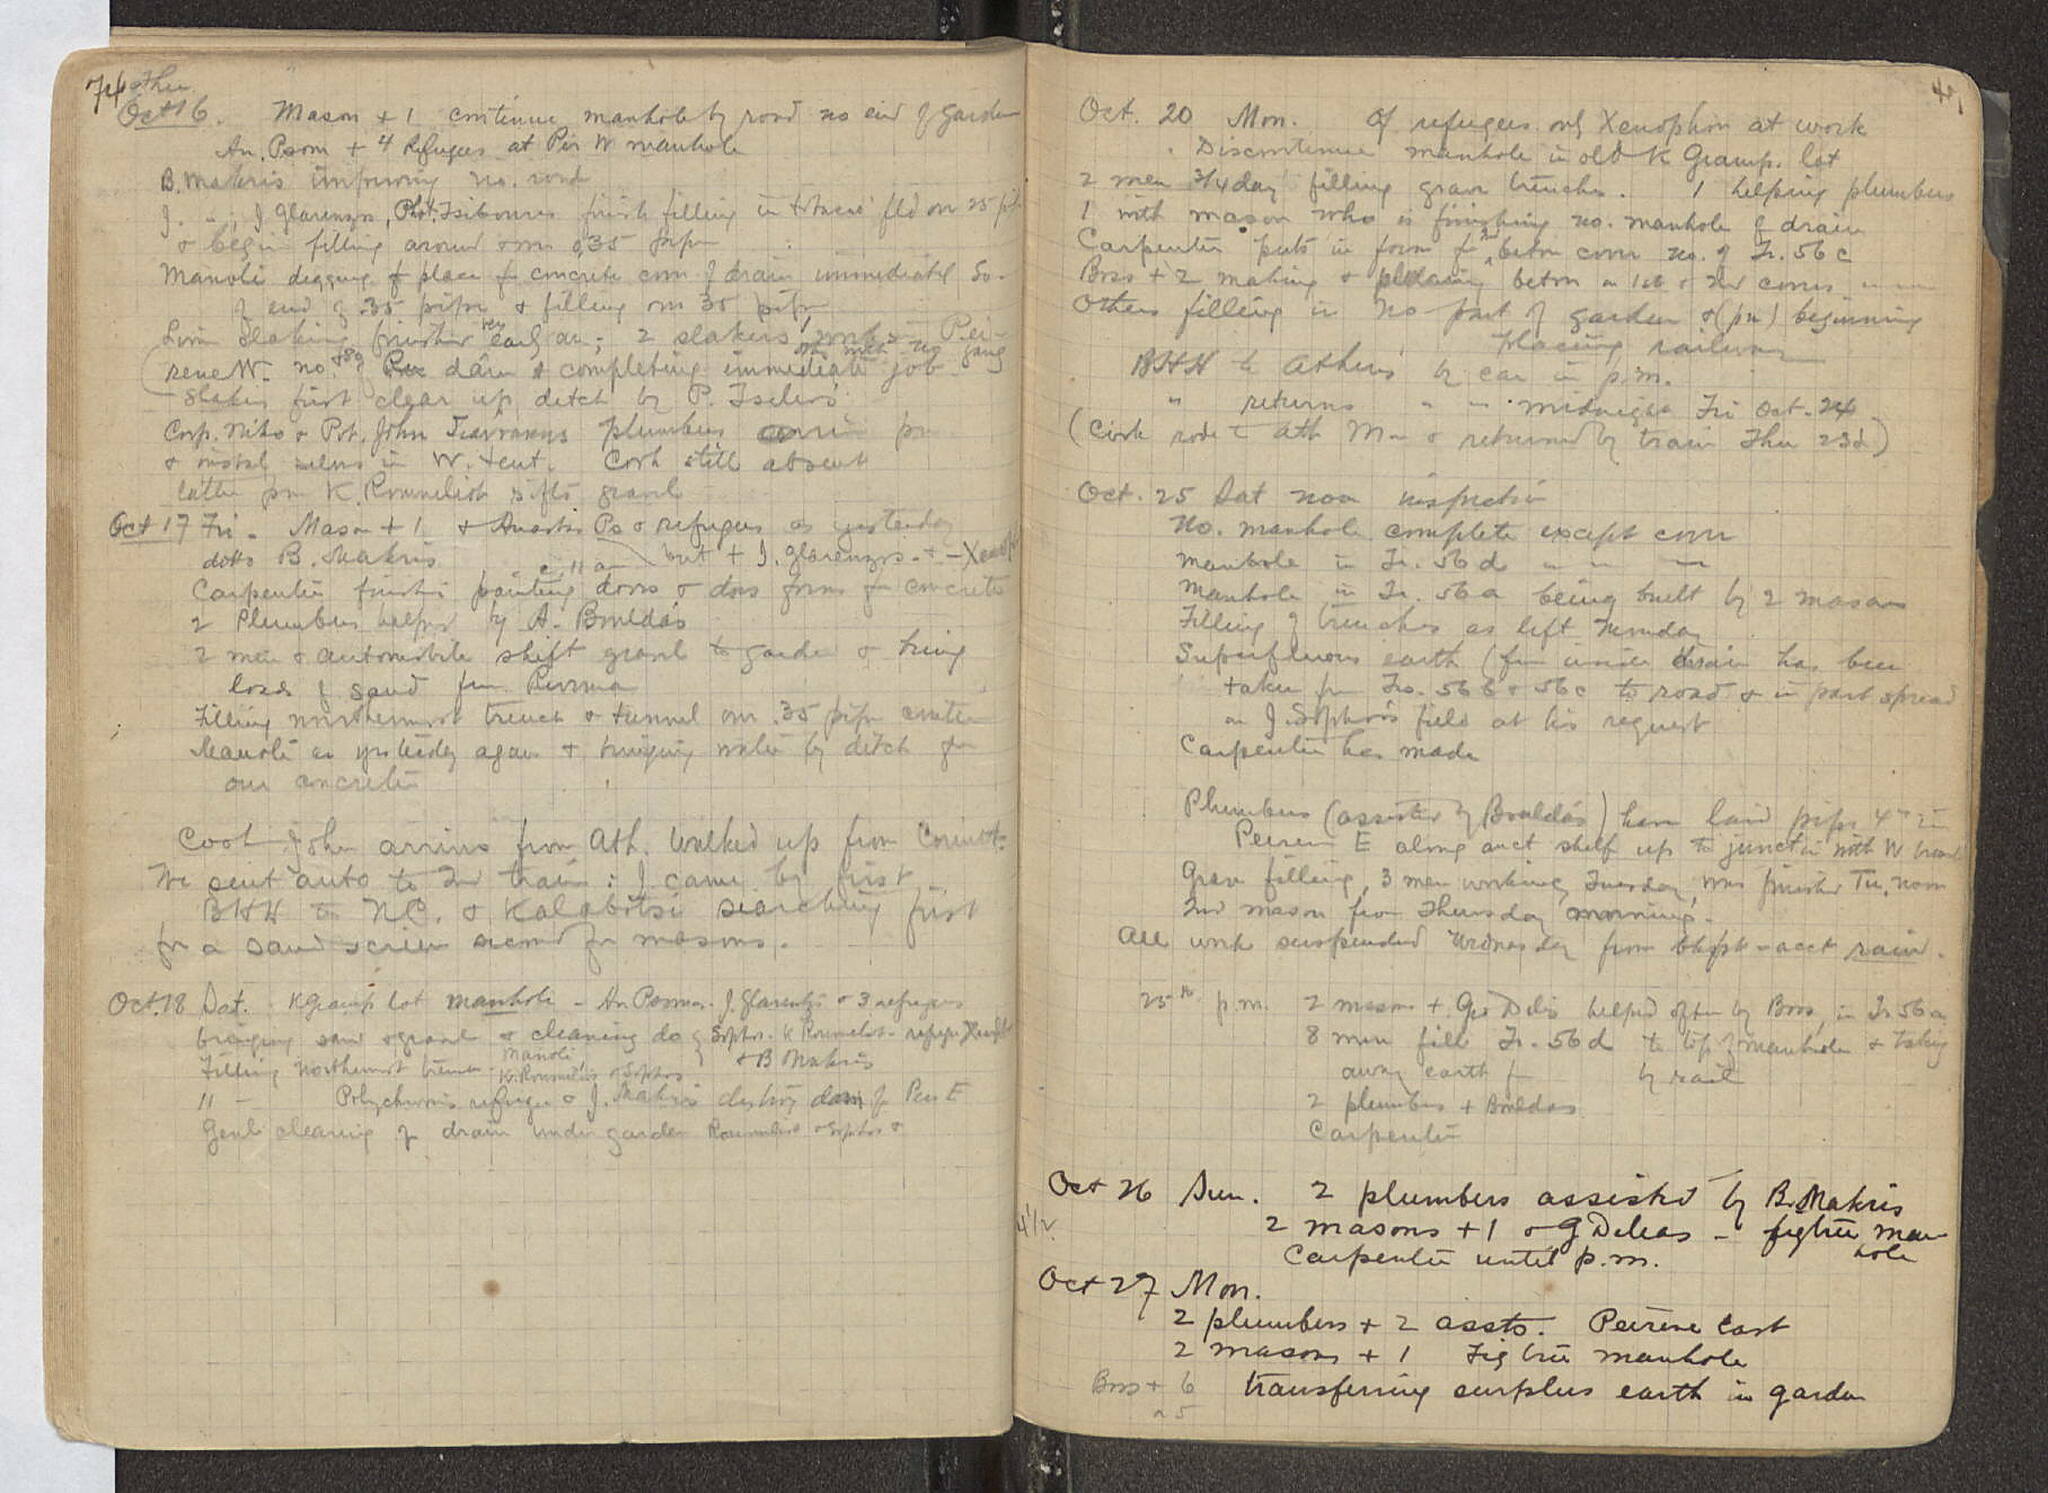 74 Thu
Oct 16. Mason + 1 continue manhole by road no end of garden
An. Psom + 4 Refugees at Peir W manhole
B. Makris improving no. road
J. " ; J Glarenzos, Phot. Tsibouris finish filling in fld on 25 pipe
& begin filling around & over .35 pipe
Manoli digging of place for concrete cover of drain immediately So.
of end of .35 pipe & filling over 35 pipe
Lime slaking finished early am; 2 slakers work in Pei-
rene W. no. of dam & completing immediate job
Slakers first clear up ditch by P. Tselios'
Corp. Niko & Pvt. John plumbers arrive pm
& install selves in W. tent. Cook still absent
latter pm K. Roumeliot sifts gravel
Oct 17 Fri. Mason + 1 & Anastas Ps & refugees as yesterday
ditto B. Makris c. 11 am but + J. Glarenzos
Carpenter finishes painting doors & does forms for concrete
2 Plumbers helped by A. Bouldas
2 men & automobile shift gravel to garden & bring
loads of sand fm
Filling northernmost trench & tunnel over .35 pipe
Manoli as yesterday again & bringing water by ditch for
our concrete
Cook John arrives from Ath. Walked up from Corinth.
We sent auto to 2nd train: J. came by first
BHH to N.C. & Kalabotsi searching first
for a sand screen second for masons.
Oct. 18 Sat. K Gramp lot manhole - An Psomas. J. Glarentzos & 3 refugees
bringing sand & gravel & cleaning do of Sophos. K Roumeliot - refugee Xenoph
Filling Northernmost trench Manoli & B Makris
K. Roumeliot & Sophos
11 - Polychronis refugee & J. Makris destroy dam of Peir E
Genl cleaning of drain under garden Roumeliot & Sophos &
Oct. 20 Mon. Of refugees only Xenophon at work
Discontinue manhole in old K Gramp. lot
2 men 3/4 day filling grave trenches. 1 helping plumbers
1 with mason who is finishing no. manhole of drain
Carpenter puts in form for 2nd beton cover no. of Tr. 56 c
Boss + 2 making & placing beton on 1st & 2nd covers
Others filling in No part of garden & (pm) beginning
placing railway
BHH to Athens by car in p.m.
" returns " " midnight Fri Oct. 24
(Cook rode to Ath Mon & returned by train Thu 23d)
Oct. 25 Sat noon inspection
No. manhole complete except cover
manhole in Tr. 56 d " " "
Manhole in Tr. 56 a being built by 2 masons
Filling of trenches as left Monday
Superfluous earth (fm inside drain has been
taken fm Trs. 56 b & 56 c to road & in part spread
on J. Sophos's field at his request
Carpenter has made
Plumbers (assisted by Bouldas) have laid pipe 4" in
Peirene E along anct shelf up to junction with W branch
Grave filling, 3 men working Tuesday, was finished Tu. noon
2nd mason from Thursday morning.
All work suspended Wednesday from bkfst - acct rain.
25th p.m. 2 masons + Geo Delis helped often by Boss, in Tr 56 a
8 men fill Tr. 56 d to top of manhole & taking
away earth by rail
2 plumbers + Bouldas
Carpenter
Oct 26 Sun. 2 plumbers assisted by B. Makris
4 1/2 2 masons + 1 & G Deleas - figtree man
hole
Carpenter until p.m.
Oct 27 Mon.
2 plumbers + 2 assts. Peirene East
2 masons + 1 Fig tree manhole
Boss + 6 transferring surplus earth in garden